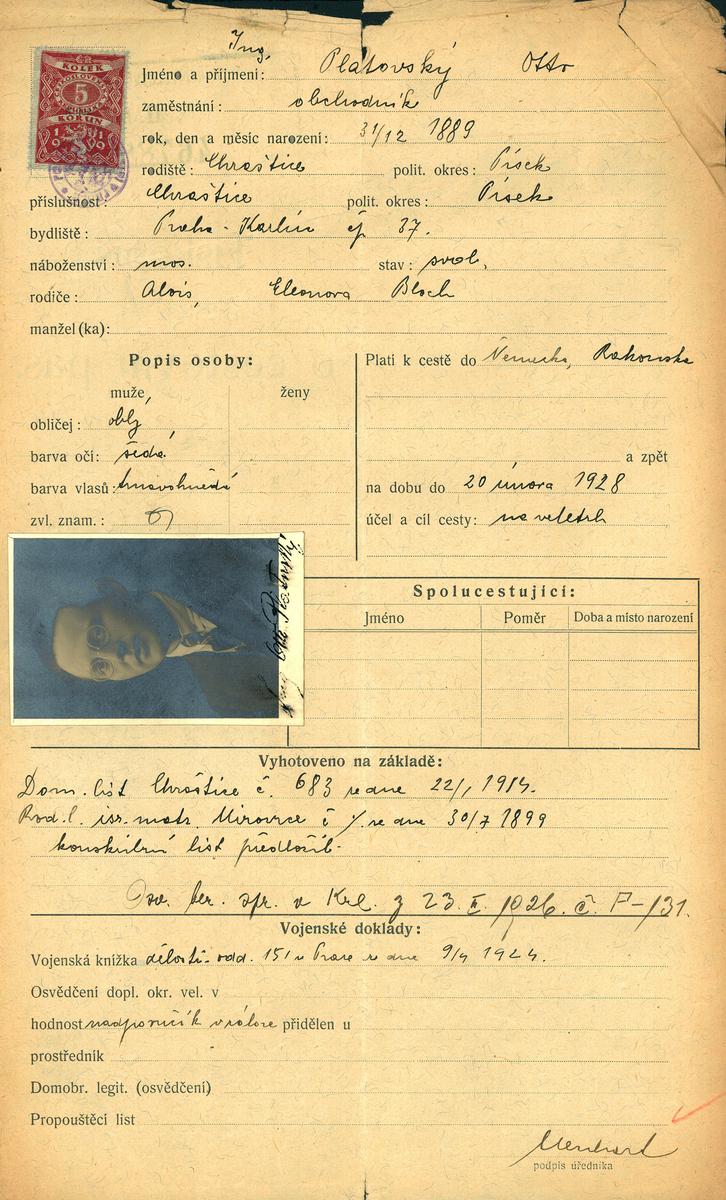 KOLEK
5
KORUN
1919
Ing.
Jméno a příjmení: Platovský Otto
zaměstnání: obchodník
rok, den a měsíc narození: 31/12 1889
rodiště: Chraštice polit. okres: Písek
příslušnost: Chraštice polit. okres: Písek
bydliště: Praha - Karlín čp 37.
náboženství: mos. stav: svob.
rodiče: Alois, Eleonora Bloch
manžel (ka):
Popis osoby:
muže, ženy
obličej: oblý
barva očí: šedá
barva vlasů: tmavohnědá
zvl. znam.:
Platí k cestě do Německa, Rakouska
a zpět
na dobu do 20 února 1928
účel a cíl cesty: na veletrh
Ing Otto Platovský
Spolucestující:
Jméno Poměr Doba a místo narození
Vyhotoveno na základě:
Dom. list Chraštice č. 683 ze dne 22/1 1914.
Rod. l. isr. matr. Mirovice č /. ze dne 30/7 1899
konskripční list předložil.
Osv. ber. spr. v Krl. z 23. II. 1926. č. P-131.
Vojenské doklady:
Vojenská knížka odd. 151 v Praze ze dne 9/4 1924.
Osvědčení dopl. okr. vel. v
hodnost nadporučík v záloze přidělen u
prostředník
Domobr. legit. (osvědčení)
Propouštěcí list
podpis úředníka